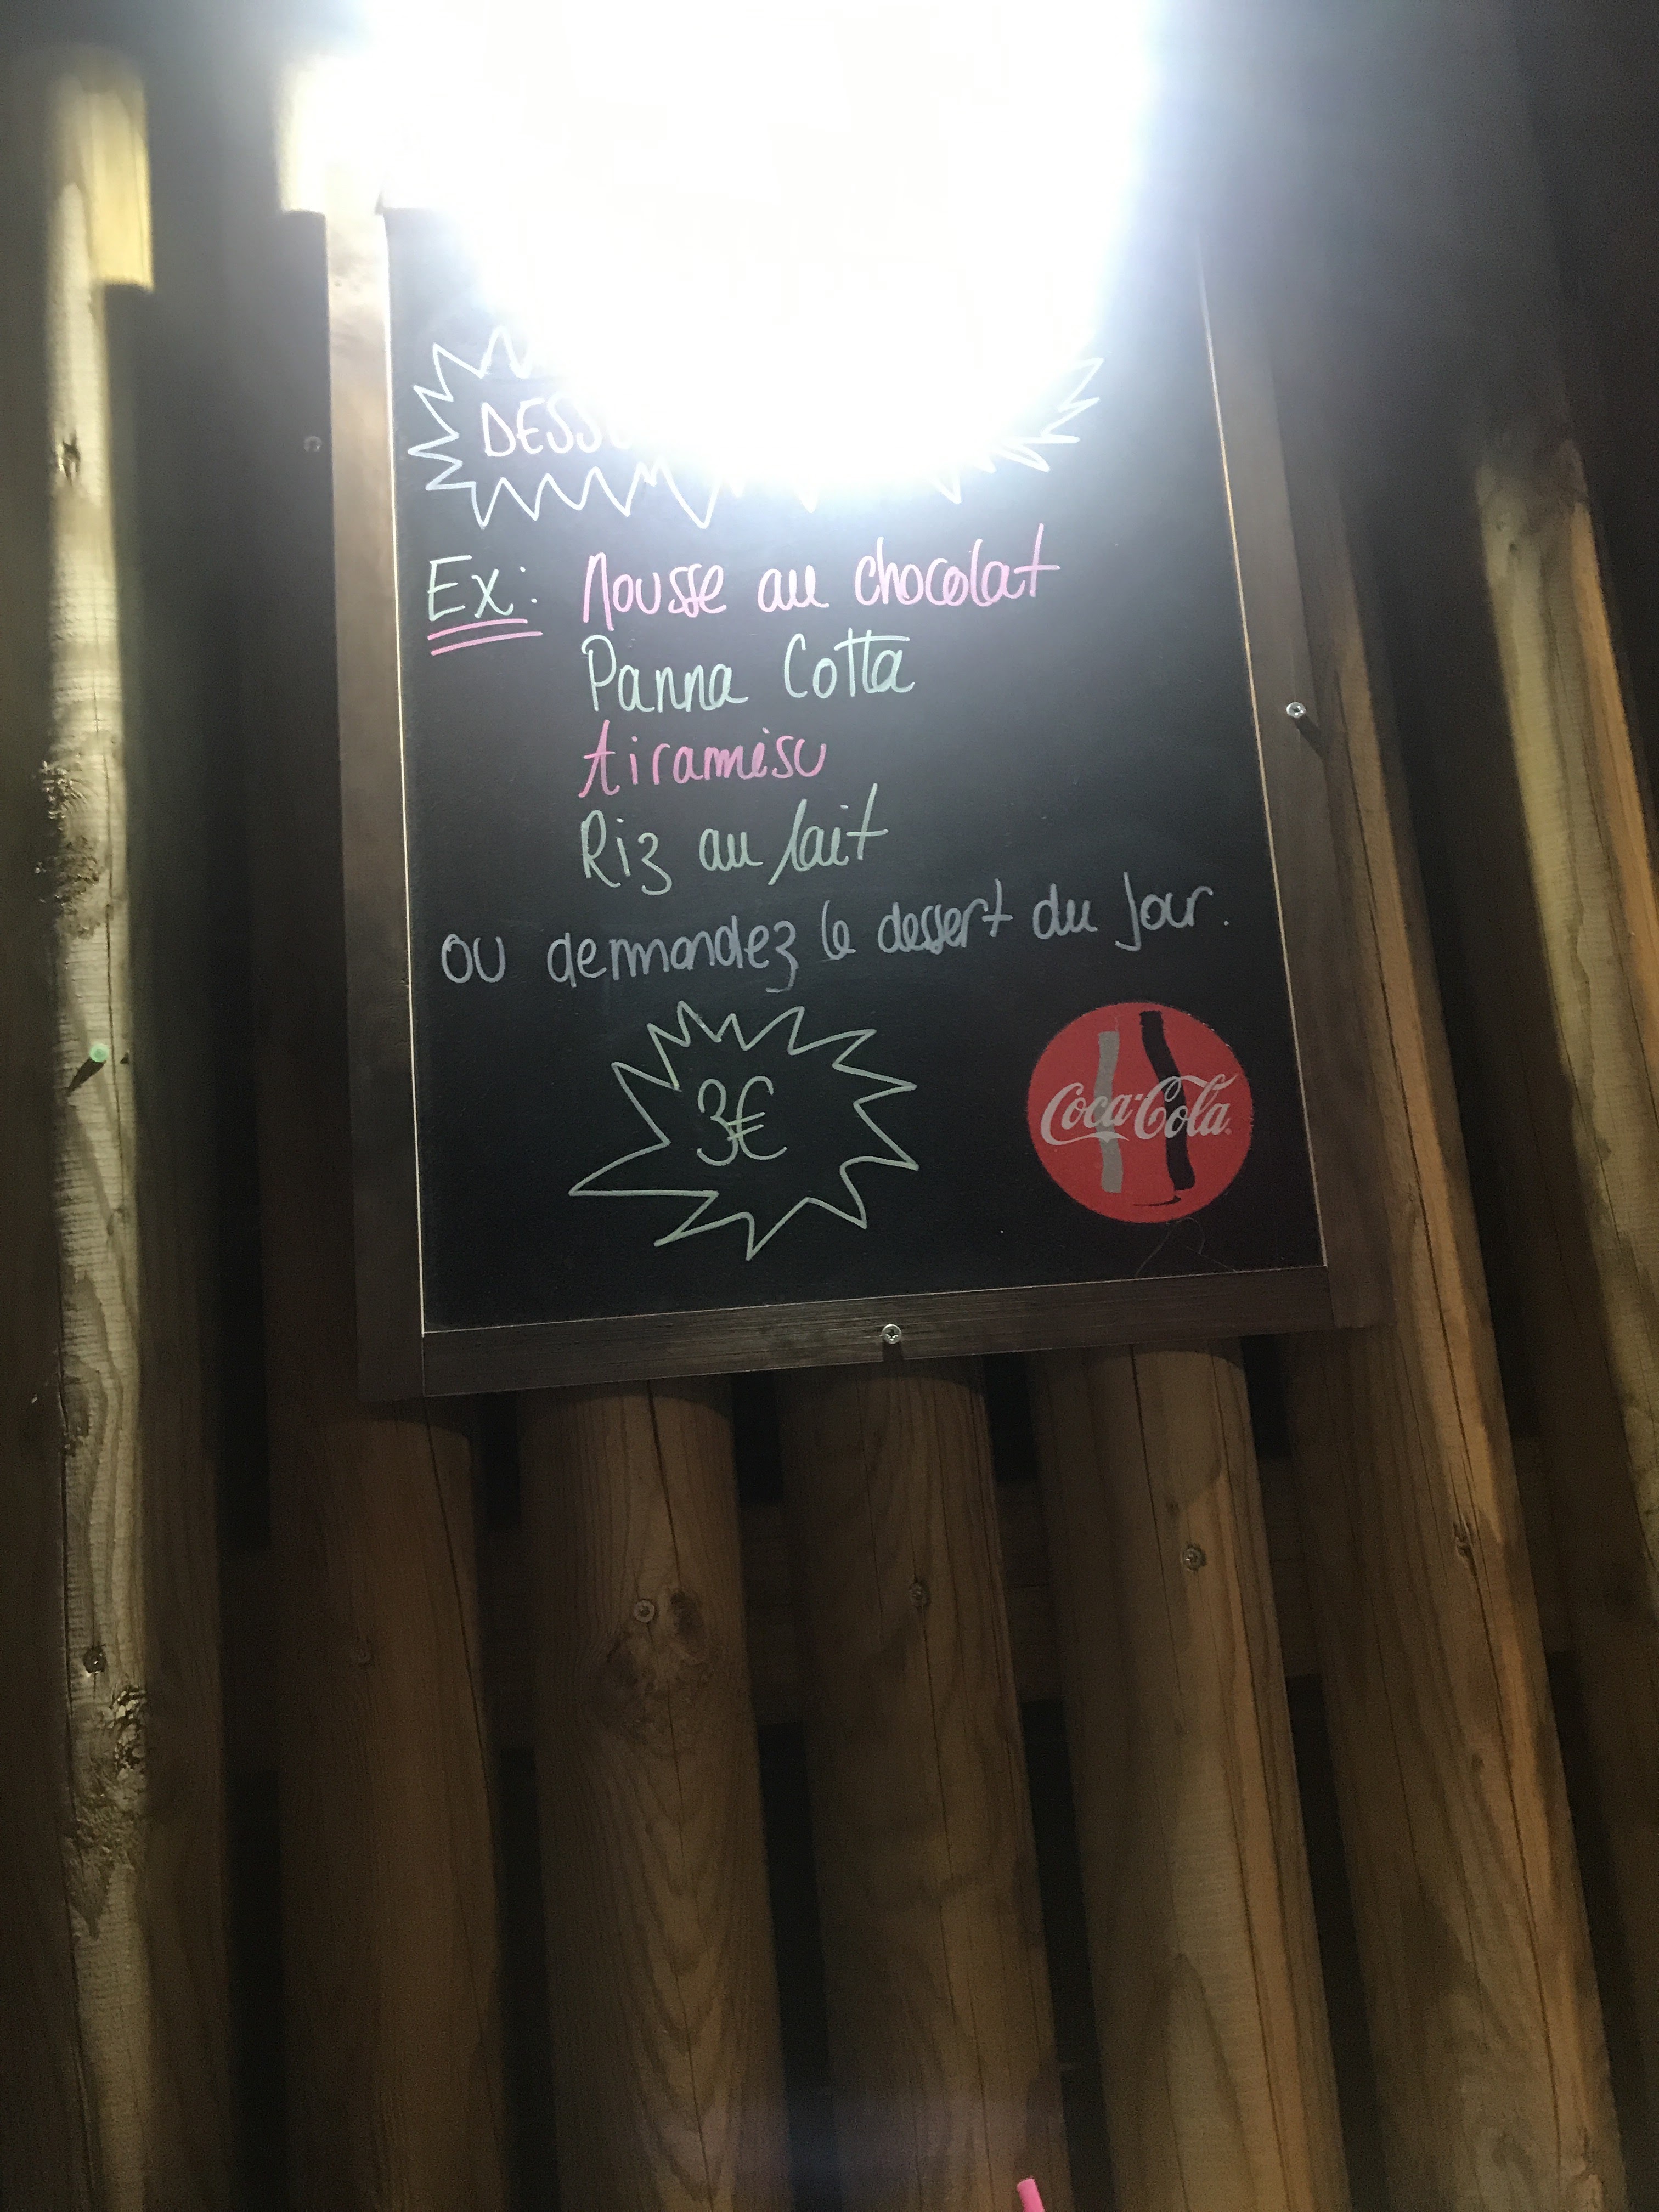 Ex: Mousse au chocolat
Panna Cotta
tiramisu
Riz au lait
ou demandez le dessert du jour.
3€
Coca-Cola